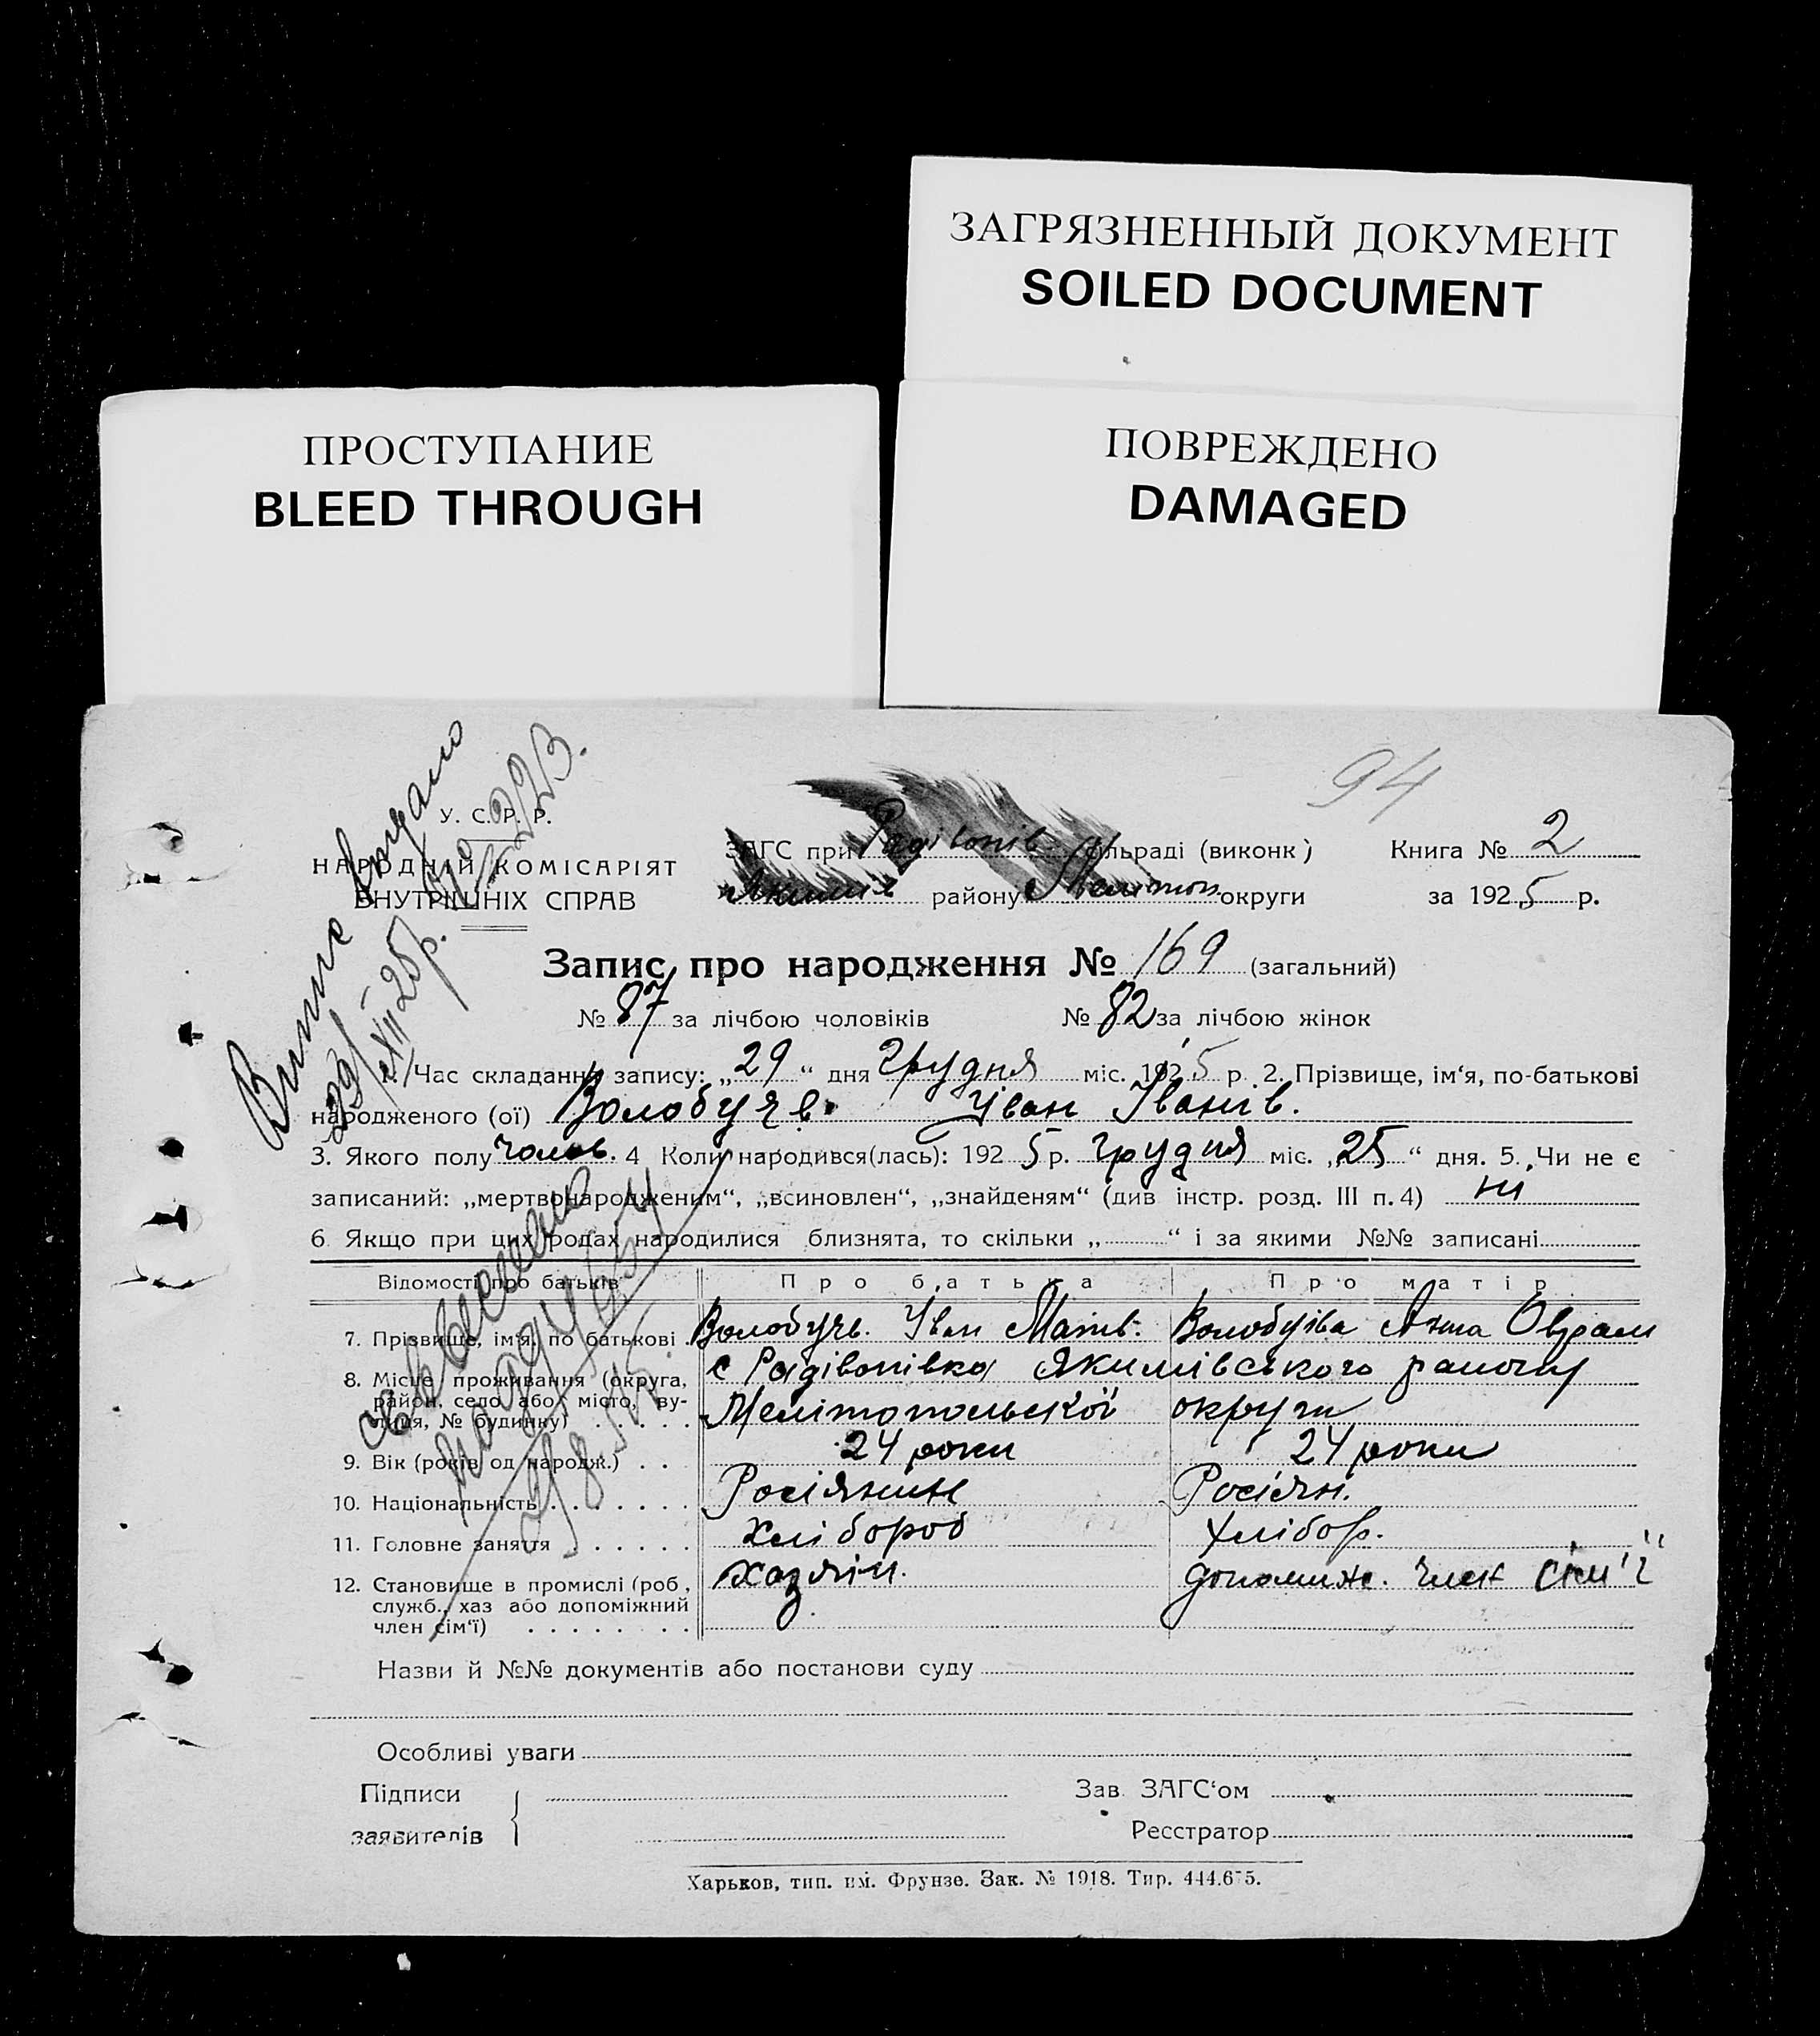 ЗАГРЯЗНЕННЫЙ ДОКУМЕНТ
SOILED DOCUMENT
ПРОСТУПАНИЕ
BLEED THROUGH
ПОВРЕЖДЕНО
DAMAGED
94
У. С. Р. Р.
НАРОДНІЙ КОМІСАРІЯТ
ВНУТРІШНІХ СПРАВ
Випис видано
29/XII 25 р.
ЗАГС при Радівонів. сільраді (виконк)
Якимів району Мелітоп округи
Книга № 2
за 1925 р.
Запис про народження № 169 (загальний)
№ 87 за лічбою чоловіків № 82 за лічбою жінок
1. Час складання запису: „29“ дня Грудня міс. 1925 р. 2. Прізвище, ім‘я, по-батькові
народженого (ої) Волобуєв. Іван Іванів.
3. Якого полу чолов. 4 Коли народився(лась): 1925 р. грудня міс. „25“ дня. 5. Чи не є
записаний: „мертвонародженим“, „всиновлен“, „знайденям“ (див інстр. розд. III п. 4) ні
6. Якщо при цих родах народилися близнята, то скільки „ “ і за якими №№ записані
Відомості про батьків Про батька Про матір
7. Прізвище, ім‘я, по батькові Волобуєв. Іван Матв. Волобуїва Анна Оврам
8. Місце проживання (округа, район, село або місто, вулиця, № будинку) с Радівонівка Якимівського району
Мелітопольської округи
9. Вік (років од народж.) 24 роки 24 роки
10. Національність Росіянин Росіян.
11. Головне заняття Хлібороб хлібор.
12. Становище в промислі (роб, служб., хаз або допоміжний член сім‘ї) хазяїн. допоміж. член сім'ї
Назви й №№ документів або постанови суду
Особливі уваги
Підписи заявителів
Зав. ЗАГС‘ом
Реєстратор
Харьков, тип. им. Фрунзе. Зак. № 1918. Тир. 444.675.